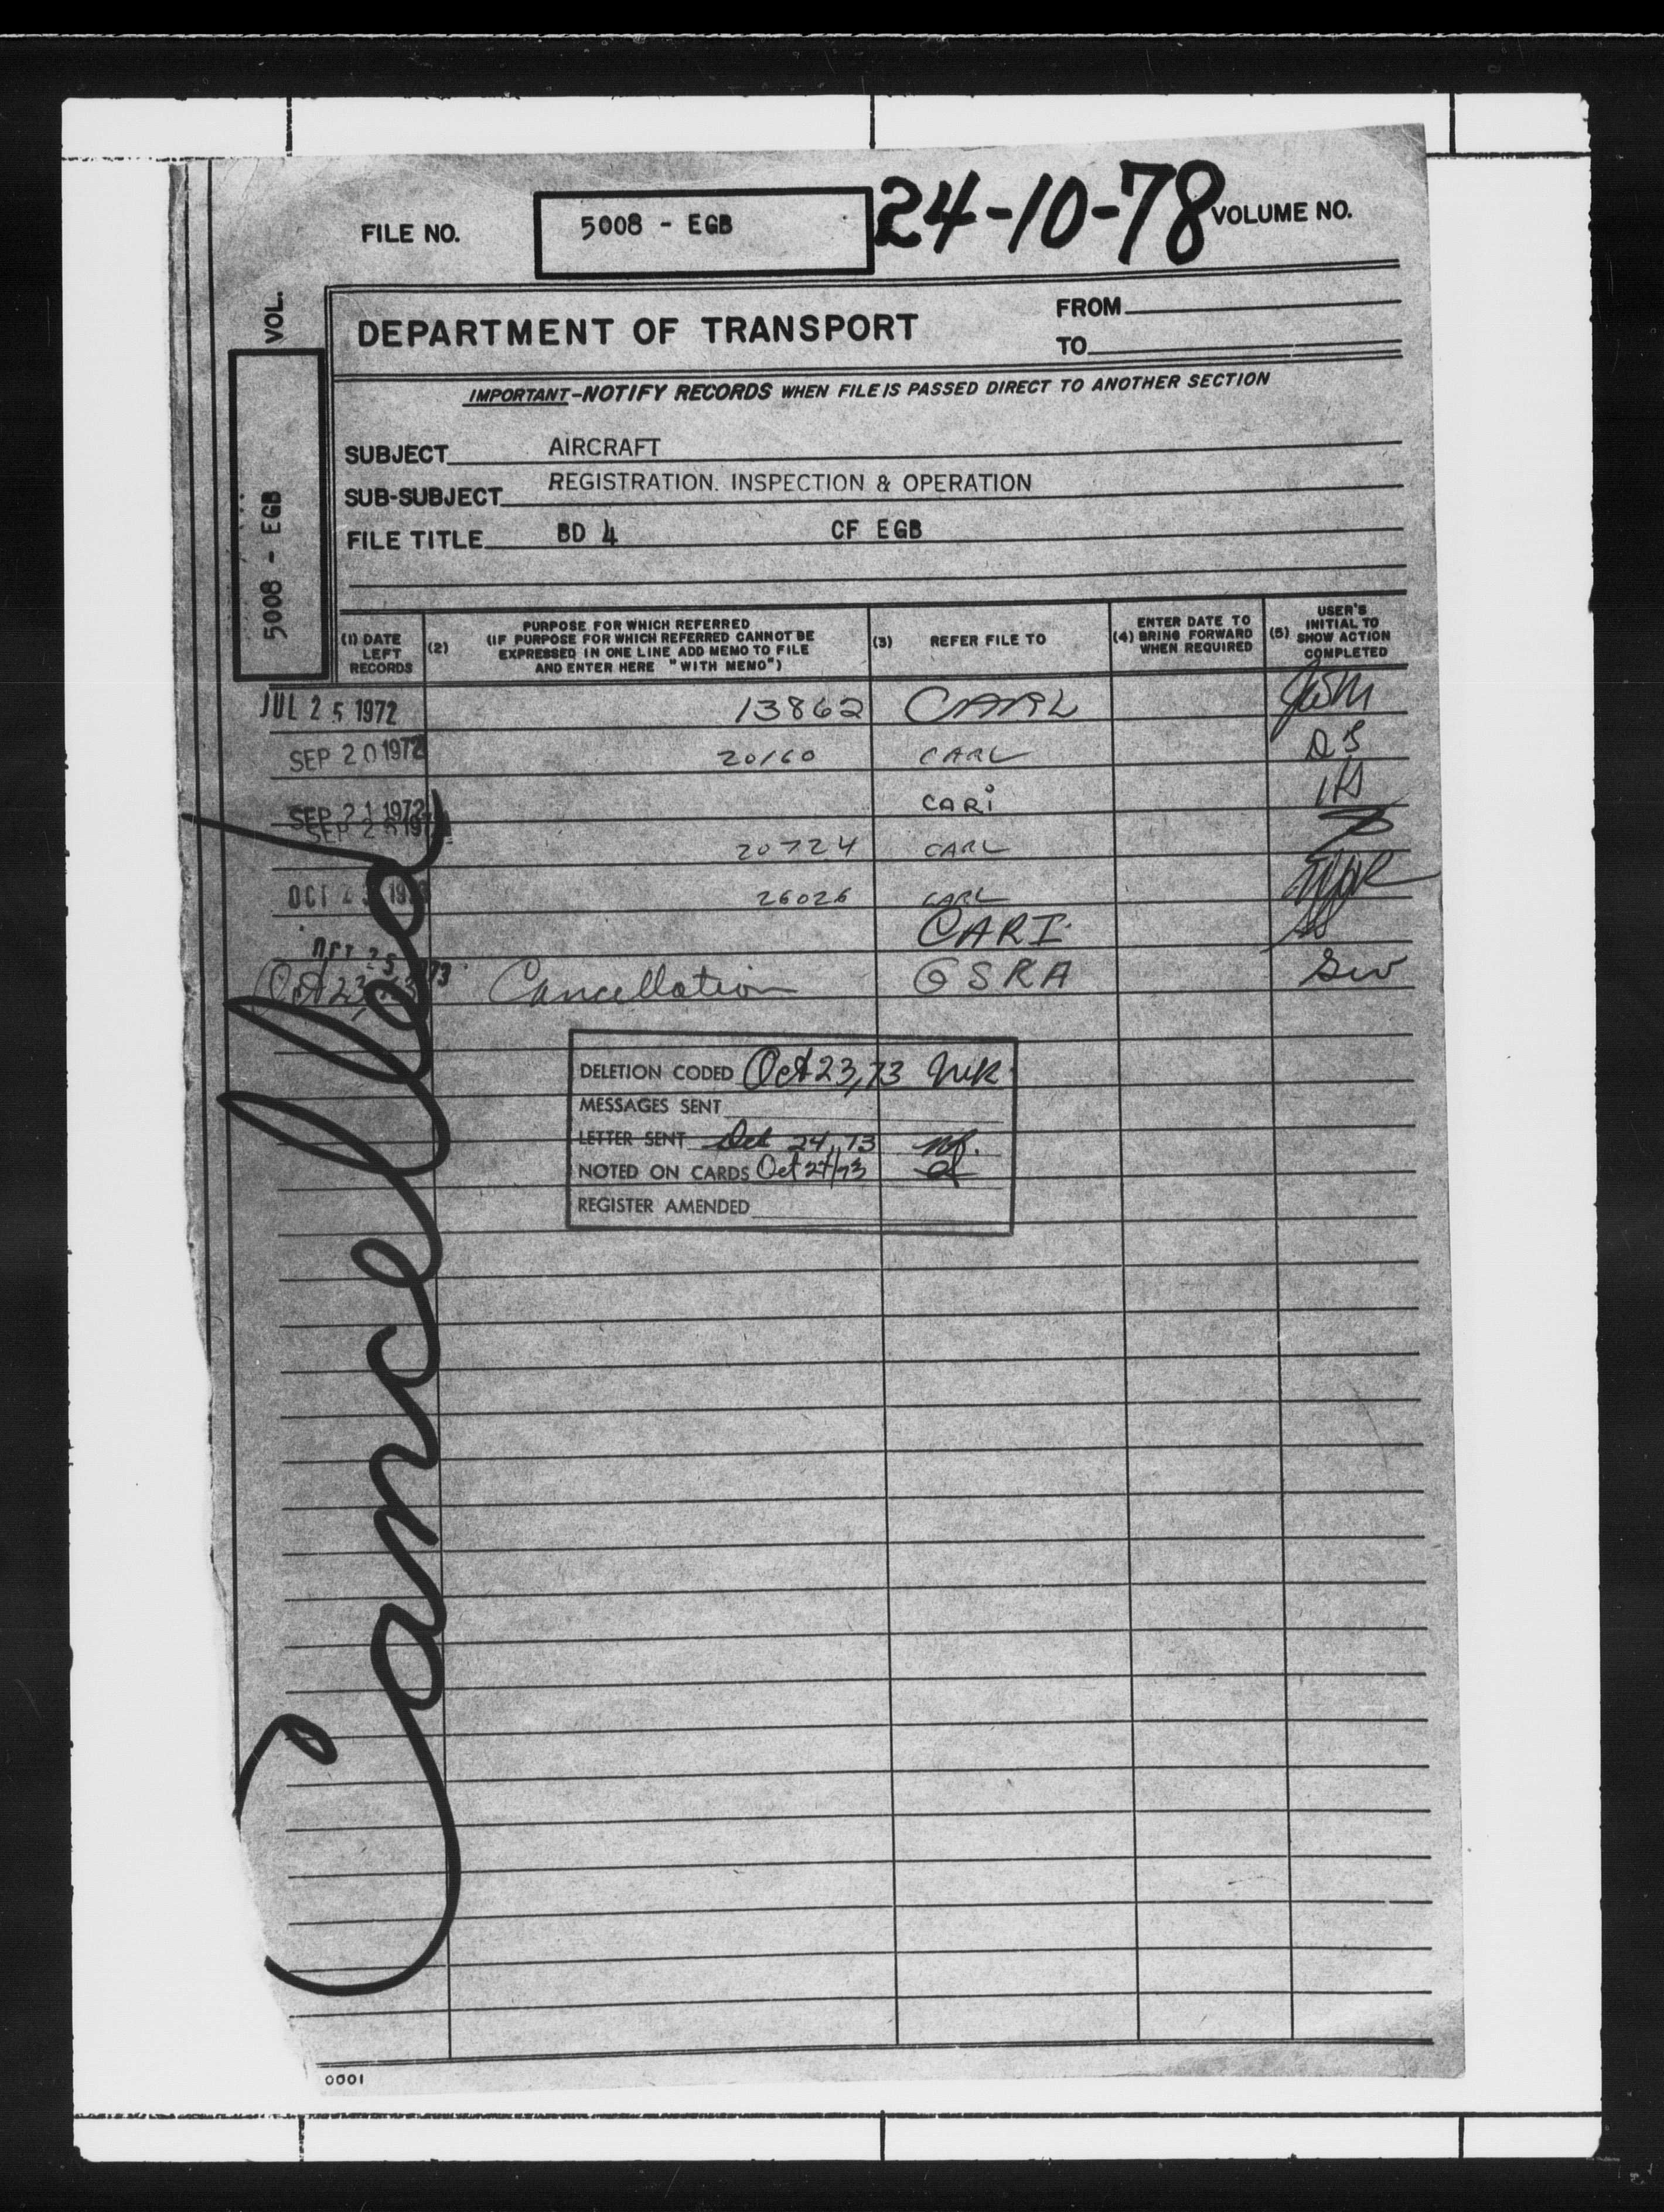 FILE NO. 5008 - EGB 24-10-78 VOLUME NO.
VOL.
5008 - EGB
DEPARTMENT OF TRANSPORT
FROM
TO
IMPORTANT-NOTIFY RECORDS WHEN FILE IS PASSED DIRECT TO ANOTHER SECTION
SUBJECT AIRCRAFT
SUB-SUBJECT REGISTRATION. INSPECTION & OPERATION
FILE TITLE BD 4 CF EGB
(1) DATE LEFT RECORDS
(2) PURPOSE FOR WHICH REFERRED
(IF PURPOSE FOR WHICH REFERRED CANNOT BE
EXPRESSED IN ONE LINE ADD MEMO TO FILE
AND ENTER HERE "WITH MEMO")
(3) REFER FILE TO
(4) ENTER DATE TO BRING FORWARD WHEN REQUIRED
(5) USER'S INITIAL TO SHOW ACTION COMPLETED
JUL 25 1972 13862 CARL
SEP 20 1972 20160 CARL DB
SEP 21 1972 CARI
20724 CARL
OCT 26026 CARL
OCT 25 CARI
Oct 23 Cancellation GSRA
Cancelled
DELETION CODED Oct 23, 73
MESSAGES SENT
LETTER SENT Oct 24, 73
NOTED ON CARDS Oct 24/73
REGISTER AMENDED
0001